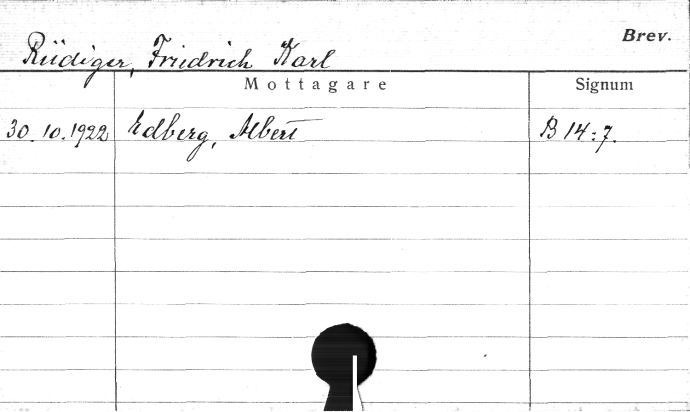 Brev.
Rüdiger, Friedrich Karl
Mottagare Signum
30.10.1922 Edberg, Albert B 14:7.